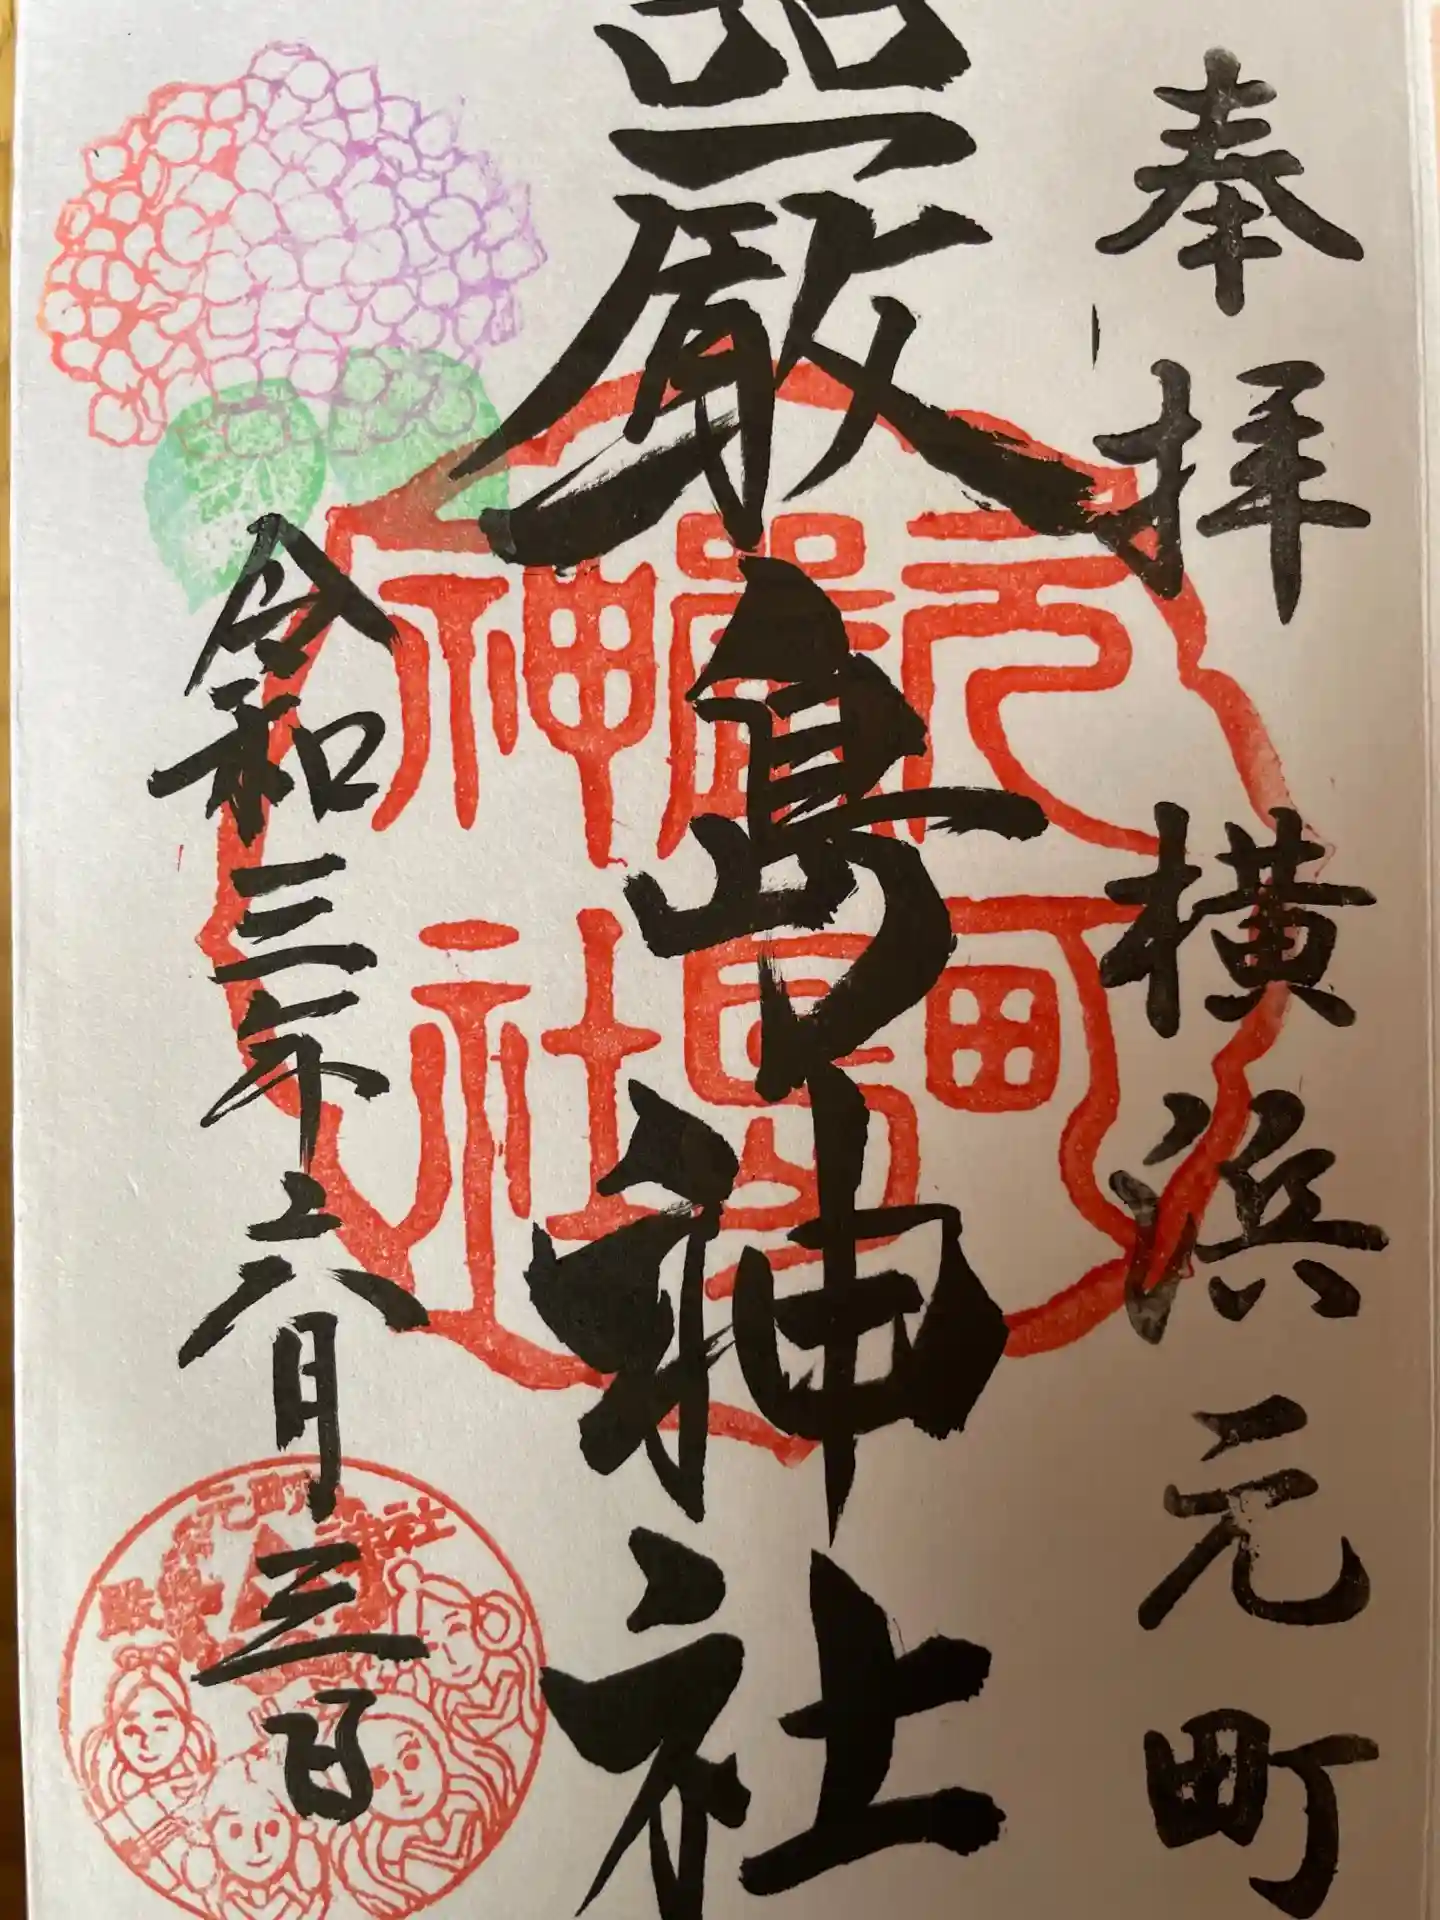 奉拝
横浜元町
嚴島神社
令和三年六月三日
元町
嚴島
神社
元町
嚴島神社